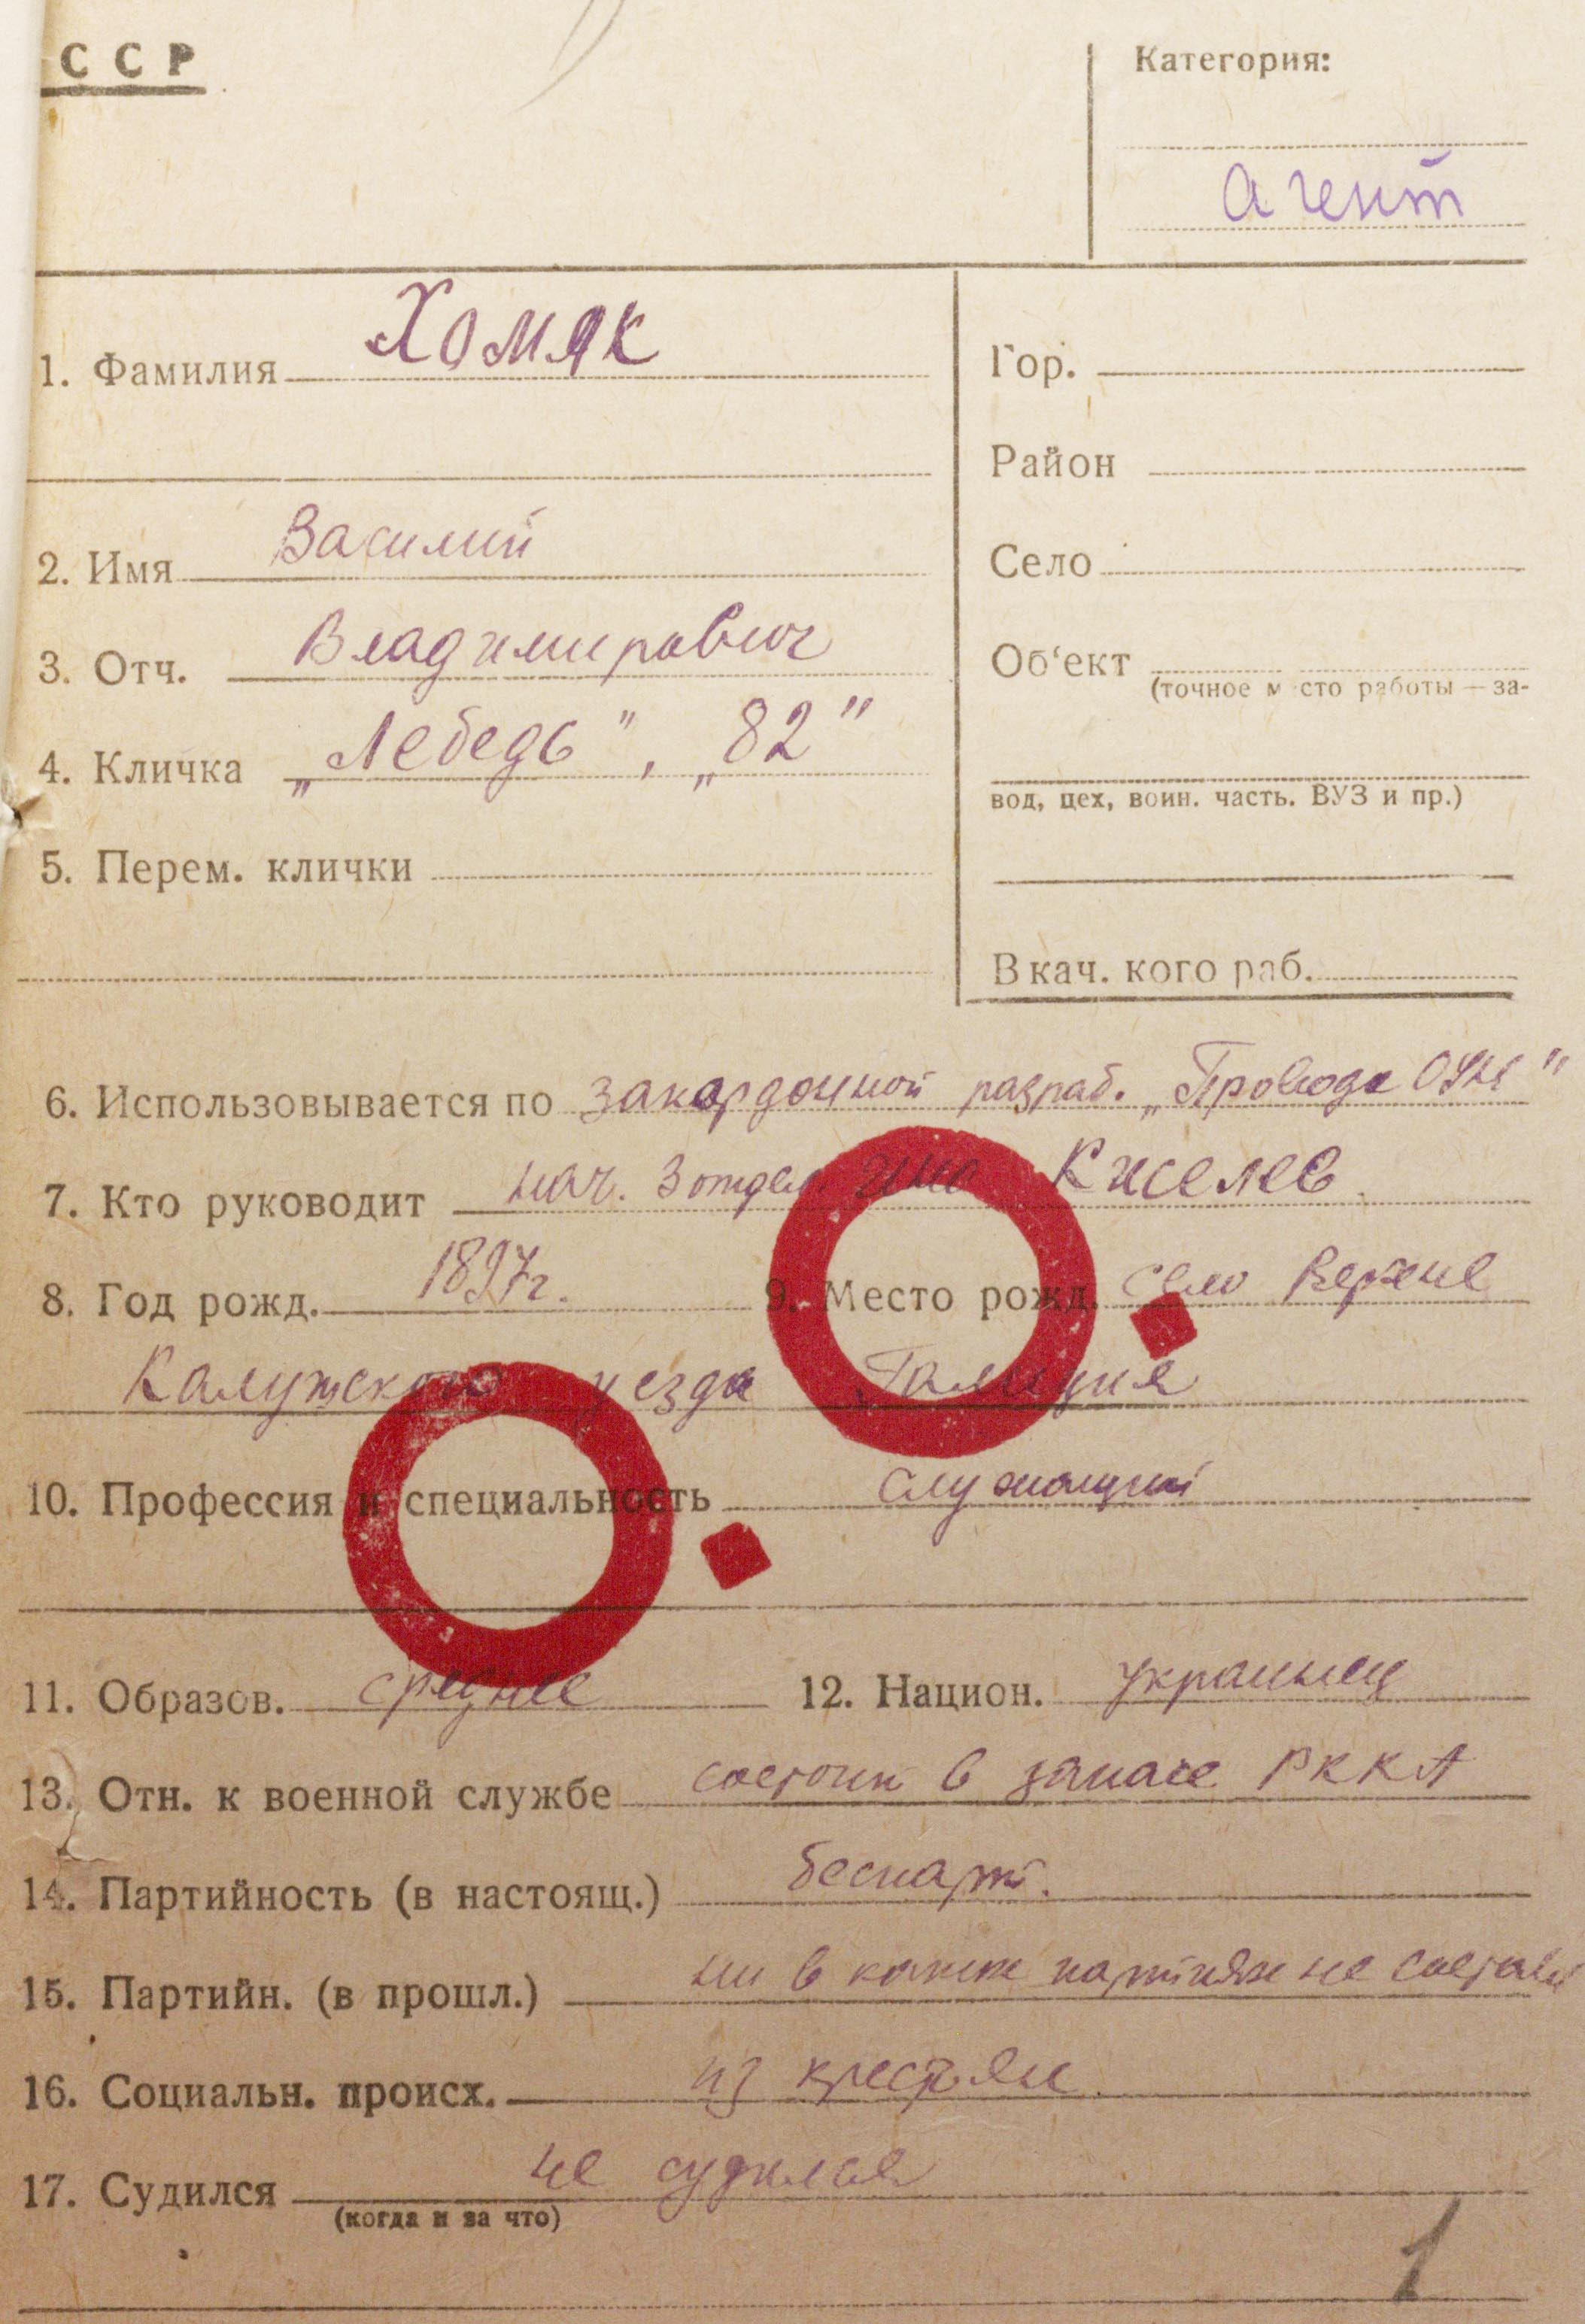 ССР
Категория:
Агент
1. Фамилия Хомяк
2. Имя Василий
3. Отч. Владимирович
4. Кличка „Лебедь", „82"
5. Перем. клички
Гор.
Район
Село
Об‘ект
(точное место работы — за-
вод, цех, воин. часть. ВУЗ и пр.)
В кач. кого раб.
6. Использовывается по закордонной разраб. „Провода ОУН"
7. Кто руководит нач. 3 отдел ИНО Киселев
8. Год рожд. 1897г. 9. Место рожд. село Верхне
Калужского уезда Галиция
10. Профессия и специальность служащий
11. Образов. среднее 12. Национ. украинец
13. Отн. к военной службе состоит в запасе РККА
14. Партийность (в настоящ.) беспарт.
15. Партийн. (в прошл.) ни в каких партиях не состоял
16. Социальн. происх. из крестьян
17. Судился не судился
(когда и за что)
1